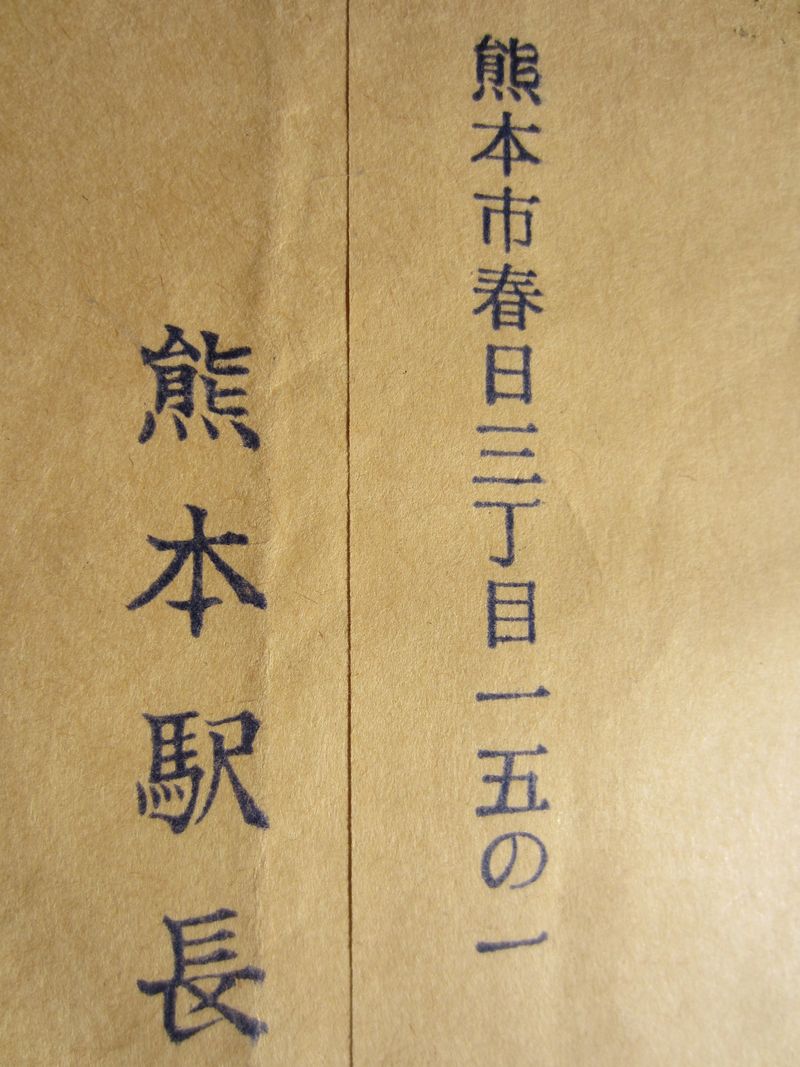 熊本市春日三丁目一五の一
熊本駅長